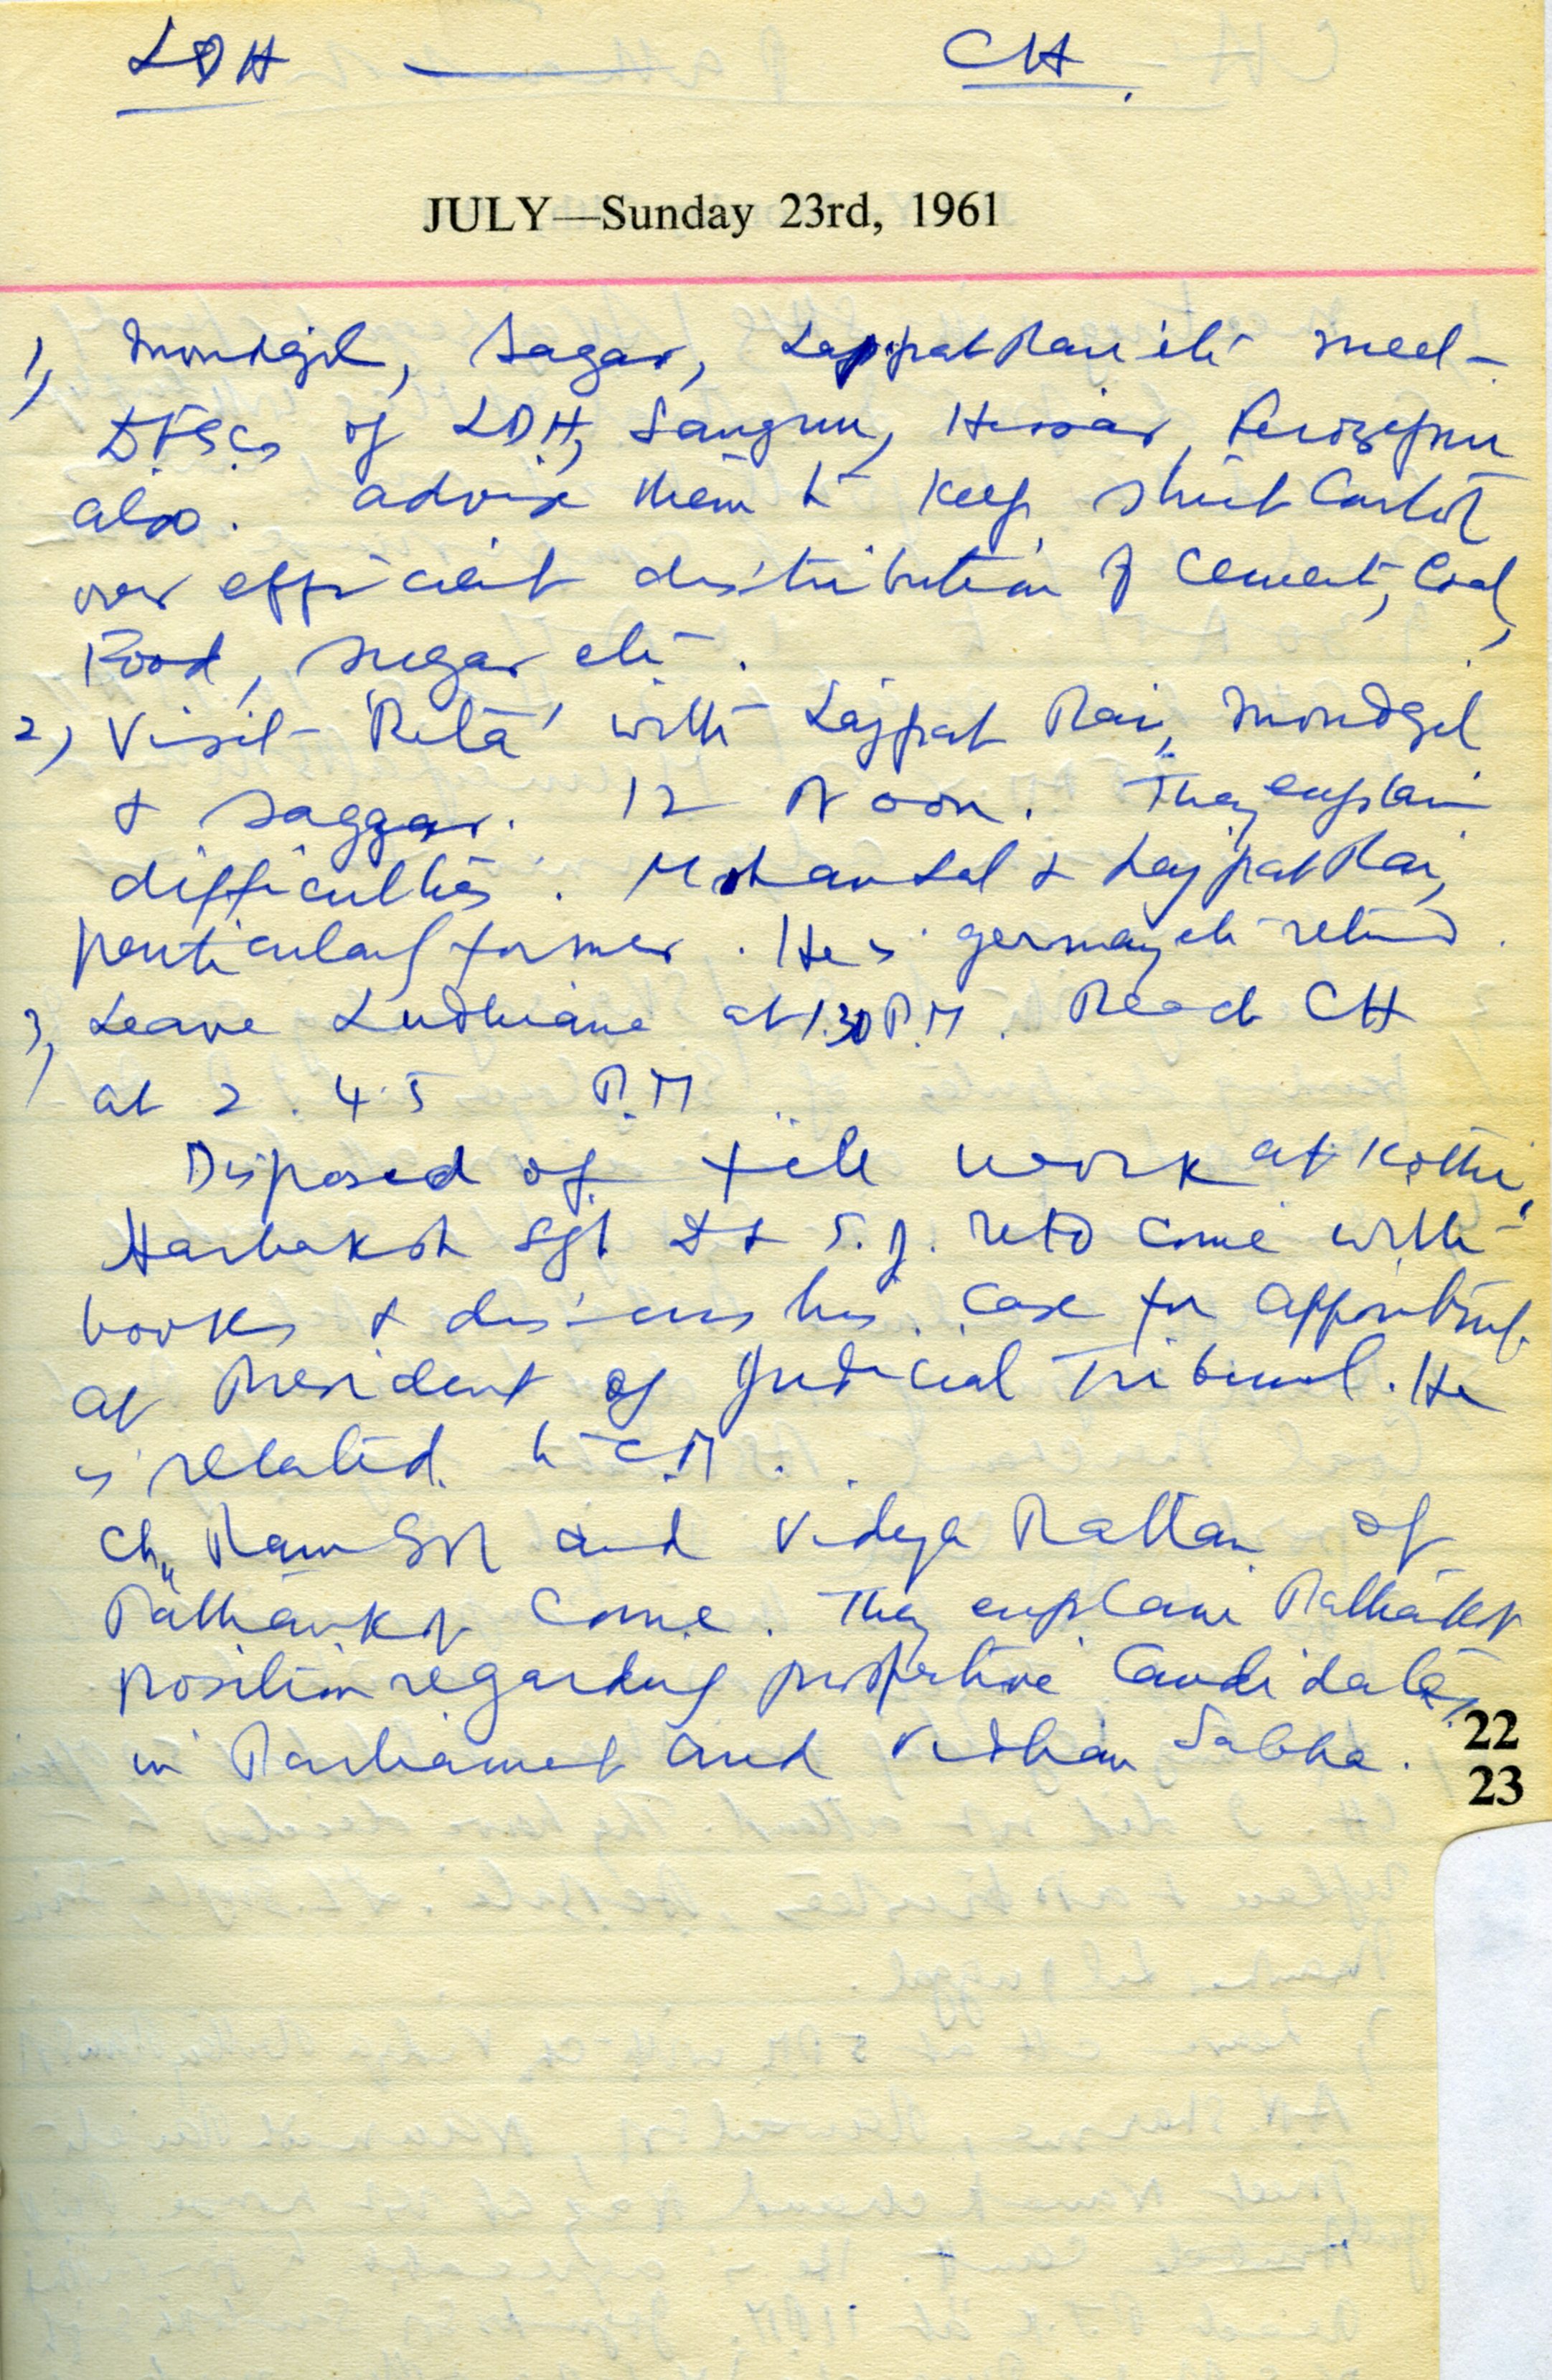 LDH — CH.
JULY—Sunday 23rd, 1961
1, Mondgil, Sagar, Lajpat Rai etc meet
DFSCs of LDH, Sangrur, Hissar, Ferozepur
also. advise them to keep strict Control
over efficient distribution of Cement, Coal,
Food, sugar etc.
2, Visit 'Rita' with Lajpat Rai, Mondgil
& Saggar. 12 Noon. They explain
difficulties. Mohan Lal & Lajpat Rai,
particularly former. He is Germany retd.
3, Leave Ludhiana at 1.30 P.M. Reach CH
at 2.45 P.M
Disposed of file work at Kothi,
Harbaksh Sgh D & S.J. retd come with
books & discuss his case for appointment
as President of Judicial Tribunal. He
is related to C.M.
Ch. Ram and Vidya Rattan of
Pathankot come. They explain Pathankot
position regarding prospective Candidates
in Parliament and Vidhan Sabha.
22
23